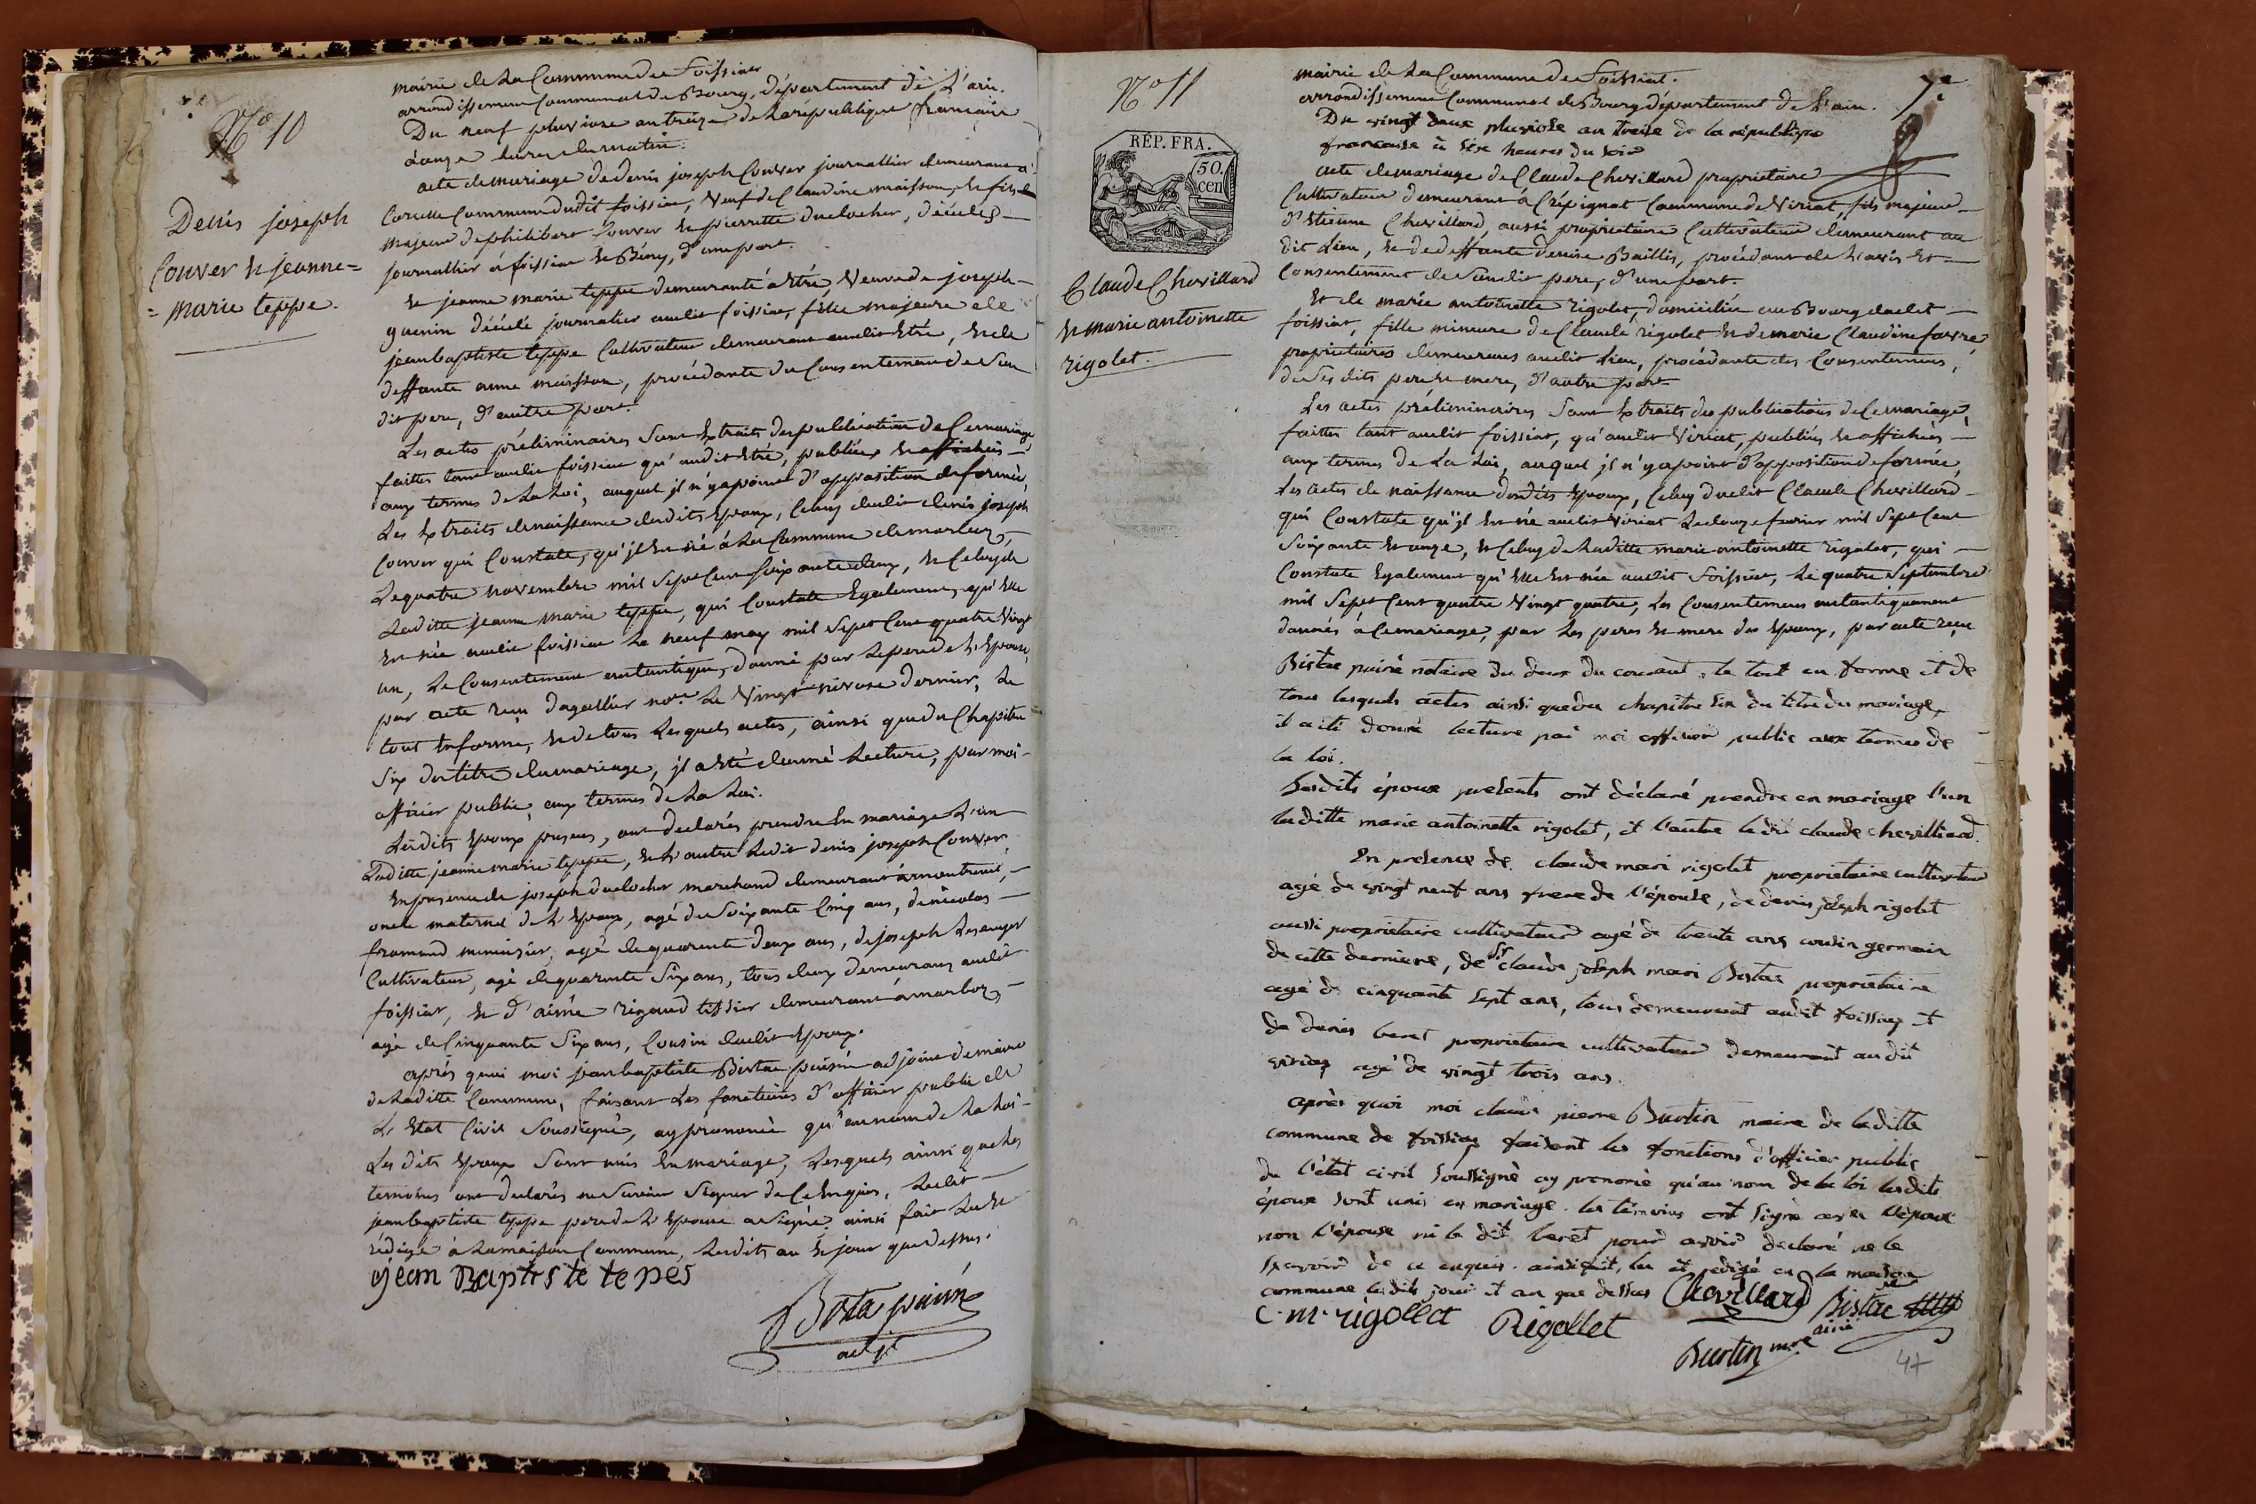 N.o 10
Denis joseph
Couver et jeanne=
=marie teppe.
mairie de la Commune de foissiat
arrondissement Communal de Bourg, département de L'ain.
Du neuf pluviose an treize de la république française
à onze heures du matin.
acte de mariage de denis joseph Couver journallier demeurant à
Commune dudit foissiat, veuf de Claudine maisson, et fils
majeur de philibert Couver et pierrette duclocher, décédés
journallier à foissiat et Bény, d'une part.
et jeanne marie teppe demeurante à Etré, veuve de joseph
guerin décédé journalier audit foissiat, fille majeure de
jean baptiste teppe Cultivateur demeurant audit Etré, et de
deffante anne maisson, procédante du Consentement de Son
dit pere, d'autre part.
Les actes préliminaires Sont Extraits des publications de Ce mariage
faittes tant audit foissiat qu'audit Etré, publiées et affichées
aux termes de La Loi, auquel jl n'y a point d'opposition de formée,
Les Extraits de naissance desdits Epoux, Celuy dudit denis joseph
Couver qui Constate, qu'jl Est né à La Commune de marboz,
Le quatre novembre mil Sept Cent Soixante deux, et Celuy de
Laditte jeanne marie teppe, qui Constate Egalement, qu'Elle
Est née audit foissiat Le neuf may mil Sept Cent quatre Vingt
un, Le Consentement autantique, donné par Le pere de L'Epouse,
par acte reçu dagallier no.re Le Vingt nivose dernier, Le
tout En forme, et de tous Lesquels actes, ainsi que du Chapitre
Six du titre du mariage, jl a Eté donné Lecture, par moi
officier public, aux termes de La Loi.
Lesdits Epoux presens, ont declarés prendre En mariage L'un
Laditte jeanne marie teppe, et L'autre Ledit denis joseph Couver,
En presence de joseph duclocher marchand demeurant à montreuil,
oncle maternel de L'Epoux, agé de Soixante Cinq ans, de nicolas
fromand menuisier, agé de quarante deux ans, de joseph
Cultivateur, agé de quarante Six ans, tous deux demeurans audit
foissiat, et d'aimé rigaud tissier demeurant à marboz,
agé de Cinquante Six ans, Cousin dudit Epoux.
après quoi moi jean baptiste Bistac puisné adjoint de maire
de Laditte Commune, faisant Les fonctions d'officier public de
L'Etat Civil Soussigné, ay prononcé qu'au nom de La Loi
Les dits Epoux Sont unis En mariage, Lesquels ainsi que Les
temoins ont declarés ne Savoir Signer de Ce Enquis, Ledit
jean baptiste teppe pere de L'Epouse a Signé, ainsi fait Lu et
rédigé à La maison Commune, Lesdits an et jour que dessus.
jean Baptiste tepes
Bistac puisné
adj.t
N.o 11
RÉP. FRA.
50.
cen
Claude Chevillard
et marie antoinette
rigolet.
mairie de La Commune de foissiat.
arrondissement Communal de Bourg département de L'ain.
Du vingt deux pluviose an treize de la république
francaise à Six heures du soir
acte de mariage de Claude Chevillard proprietaire
Cultivateur demeurant à Crépignat Commune de Viriat, fils majeur
d'Etienne Chevillard, aussi propriétaire Cultivateur demeurant au
dit Lieu, et de deffante denise Baillis, procédant de L'avis et
Consentement de Sondit pere, d'une part.
Et de marie antoinette rigolet, domiciliée au Bourg dudit
foissiat, fille mineure de Claude rigolet et de marie Claudine favre
proprietaires demeurans audit Lieu, procédante des Consentemens,
de Ses dits pere et mere, d'autre part
Les actes préliminaires Sont Extraits des publications de Ce mariage,
faittes tant audit foissiat, qu'audit Viriat, publiées et affichées
aux termes de La Loi, auquel jl n'y a point d'opposition de formée,
Les actes de naissance desdits Epoux, Celuy dudit Claude Chevillard
qui Constate qu'jl Est né audit Viriat Le douze fevrier mil Sept Cent
Soixante et onze, et Celuy de Laditte marie antoinette rigolet, qui
Constate Egalement qu'Elle Est née audit foissiat, Le quatre Septembre
mil Sept Cent quatre Vingt quatre, Les Consentemens autantiquement
donnés à Ce mariage, par Les peres et mere des Epoux, par acte reçu
Bistac puiné notaire du deux du courant, le tout en forme et de
tous lesquels actes ainsi que du chapitre six du titre du mariage,
il a été donné lecture par moi officier public aux termes de
la loi.
Lesdits époux présents ont déclaré prendre en mariage l'un
laditte marie antoinette rigolet, et l'autre ledit claude chevilliard.
En présence de claude mari rigolet proprietaire cultivateur
agé de vingt neuf ans frere de l'épouse, de denis joseph rigolet
aussi proprietaire cultivateur agé de trente ans cousin germain
de cette derniere, de Sr claude joseph mari Bistac proprietaire
agé de cinquante sept ans, tous demeurant audit foissiat et
de denis beret proprietaire cultivateur demeurant au dit
viriat agé de vingt trois ans.
après quoi moi claude pierre Burtin maire de laditte
commune de foissiat faisant les fonctions d'officier public
de l'état civil soussigné ay prononcé qu'au nom de la loi lesdits
époux sont unis en mariage. les témoins ont signé avec l'époux
non l'épouse ni le dit beret pour avoir declaré ne le
sçavoir de ce enquis. ainsi fait, lu et redigé en la maison
commune lesdits jour et an que dessus
Chevillard
Bistac
ainé
C. m. rigollet
Rigollet
Burtin m.re
47